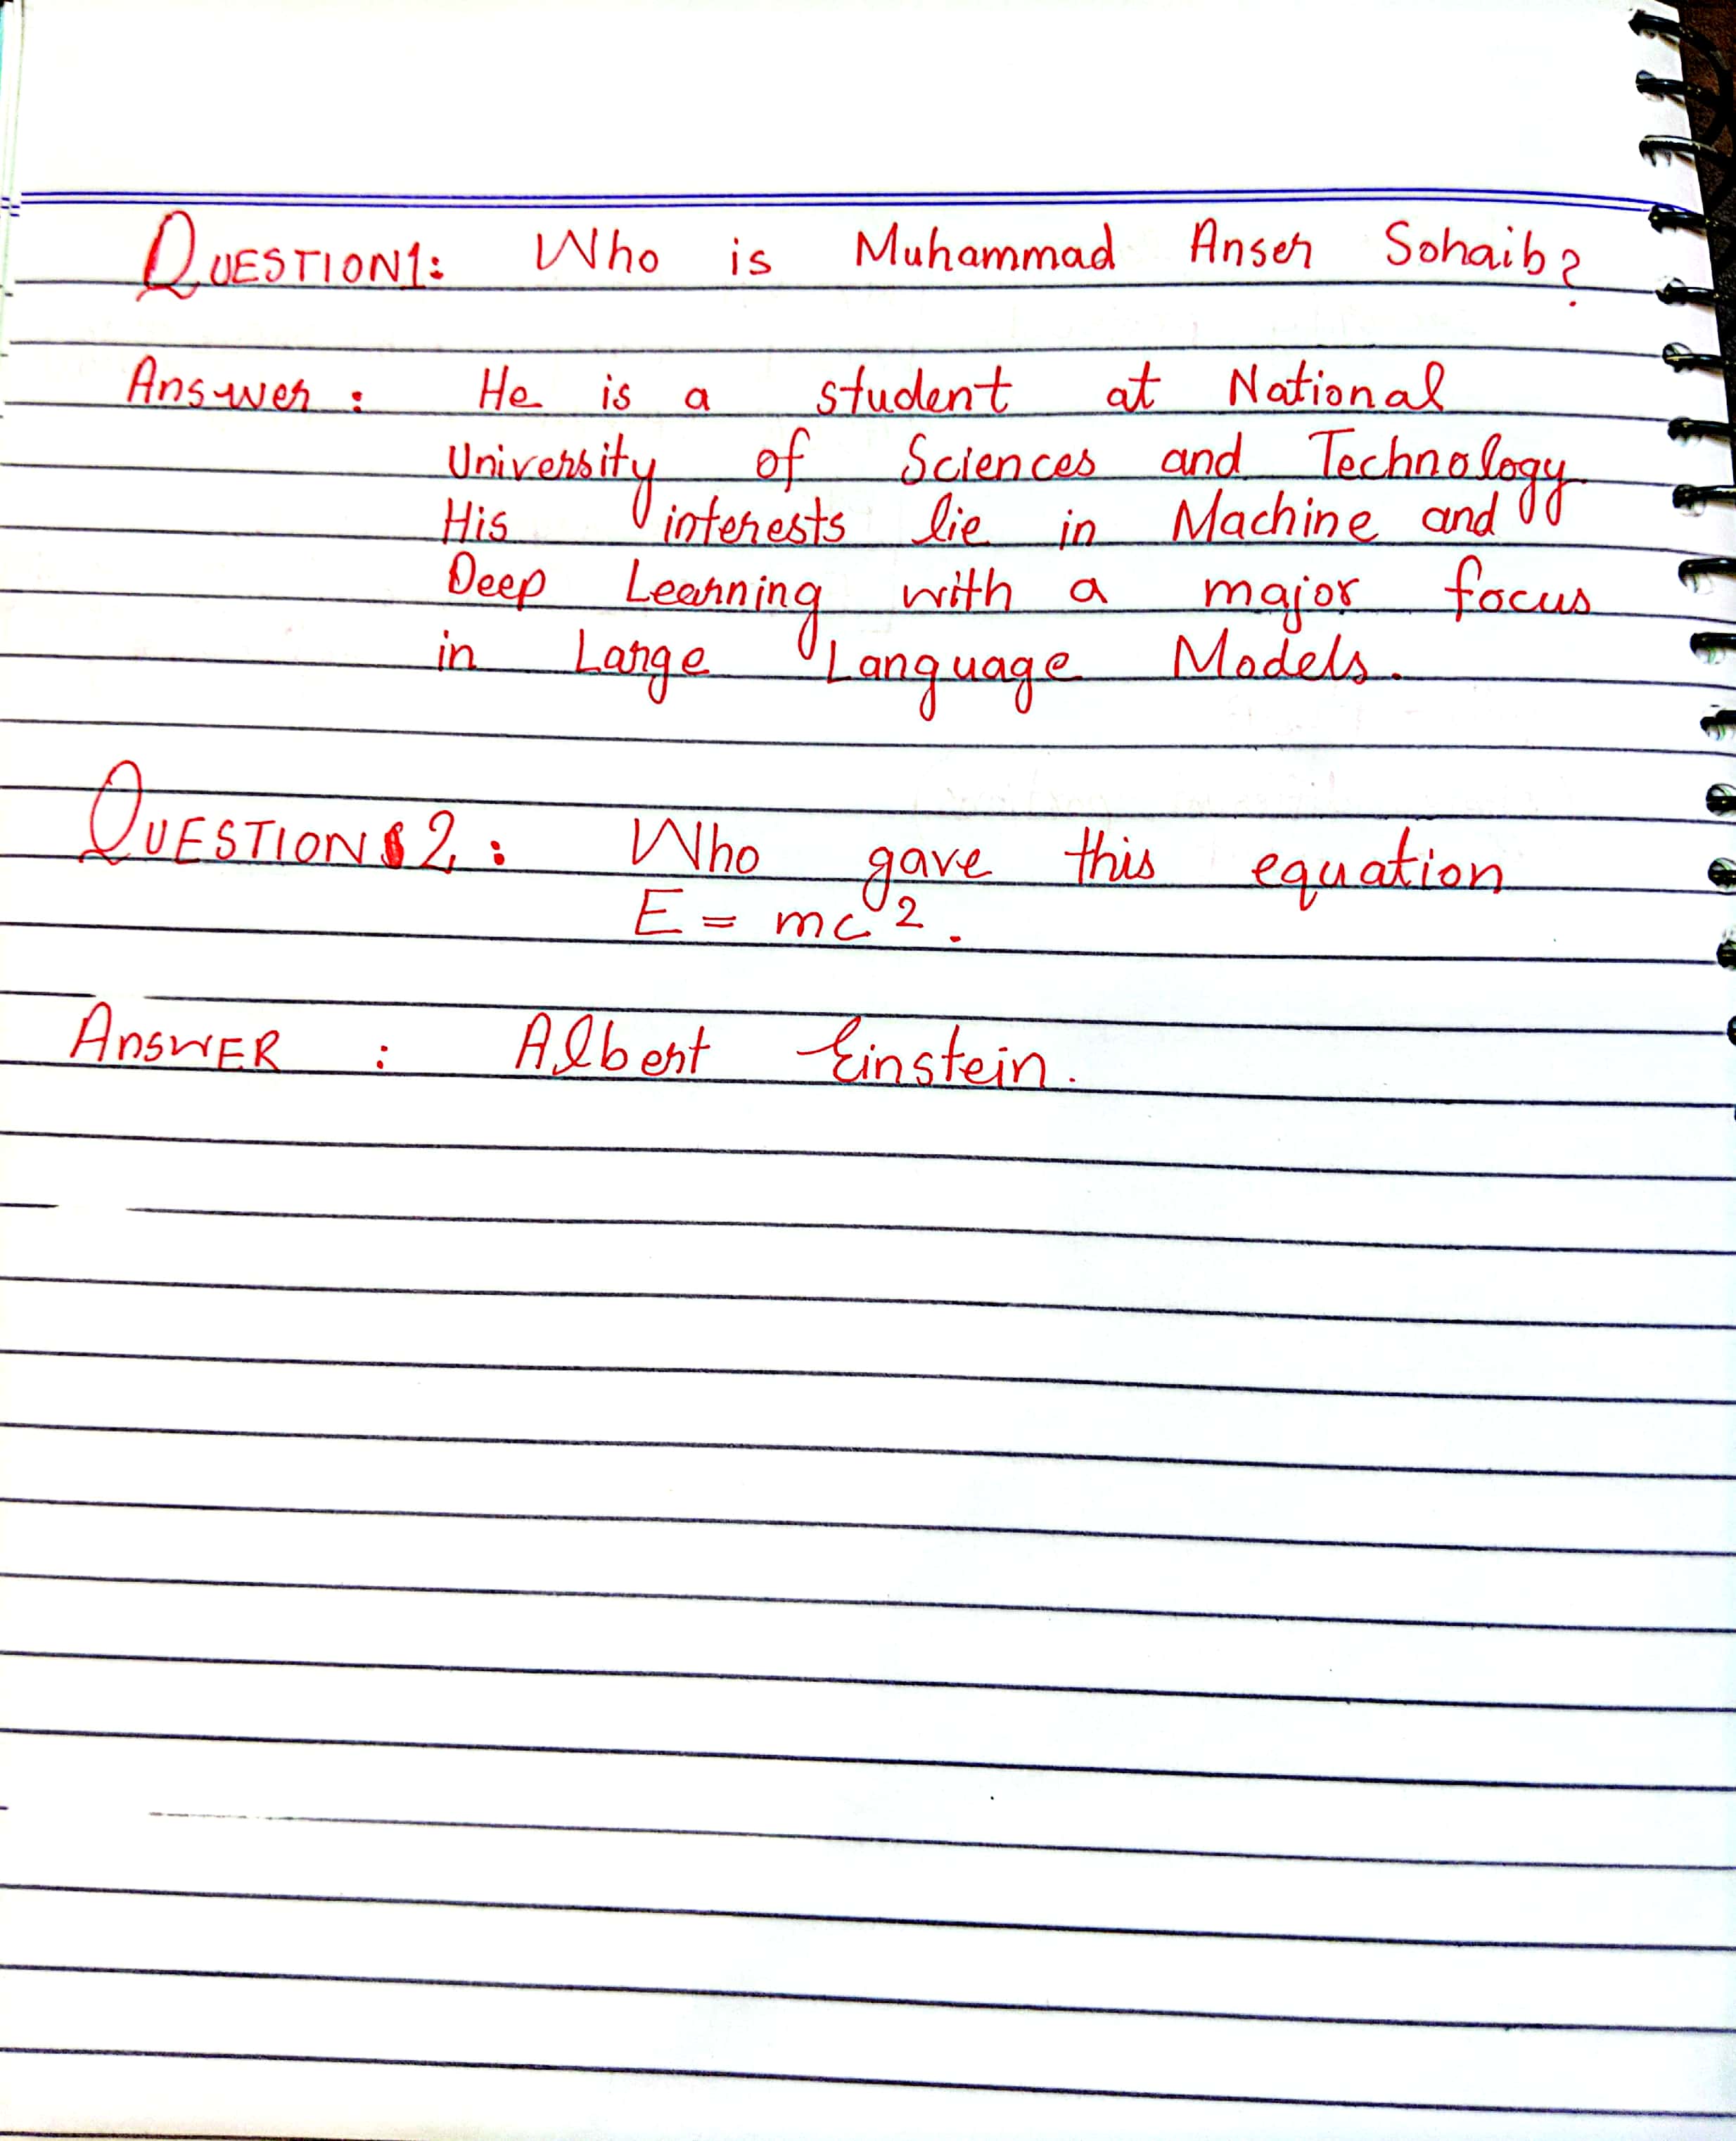 QUESTION1: Who is Muhammad Anser Sohaib?
Answer : He is a student at National
University of Sciences and Technology
His interests lie in Machine and
Deep Learning with a major focus
in Large Language Models.
QUESTION 2 : Who gave this equation
E = mc².
AnswER : Albert Einstein.